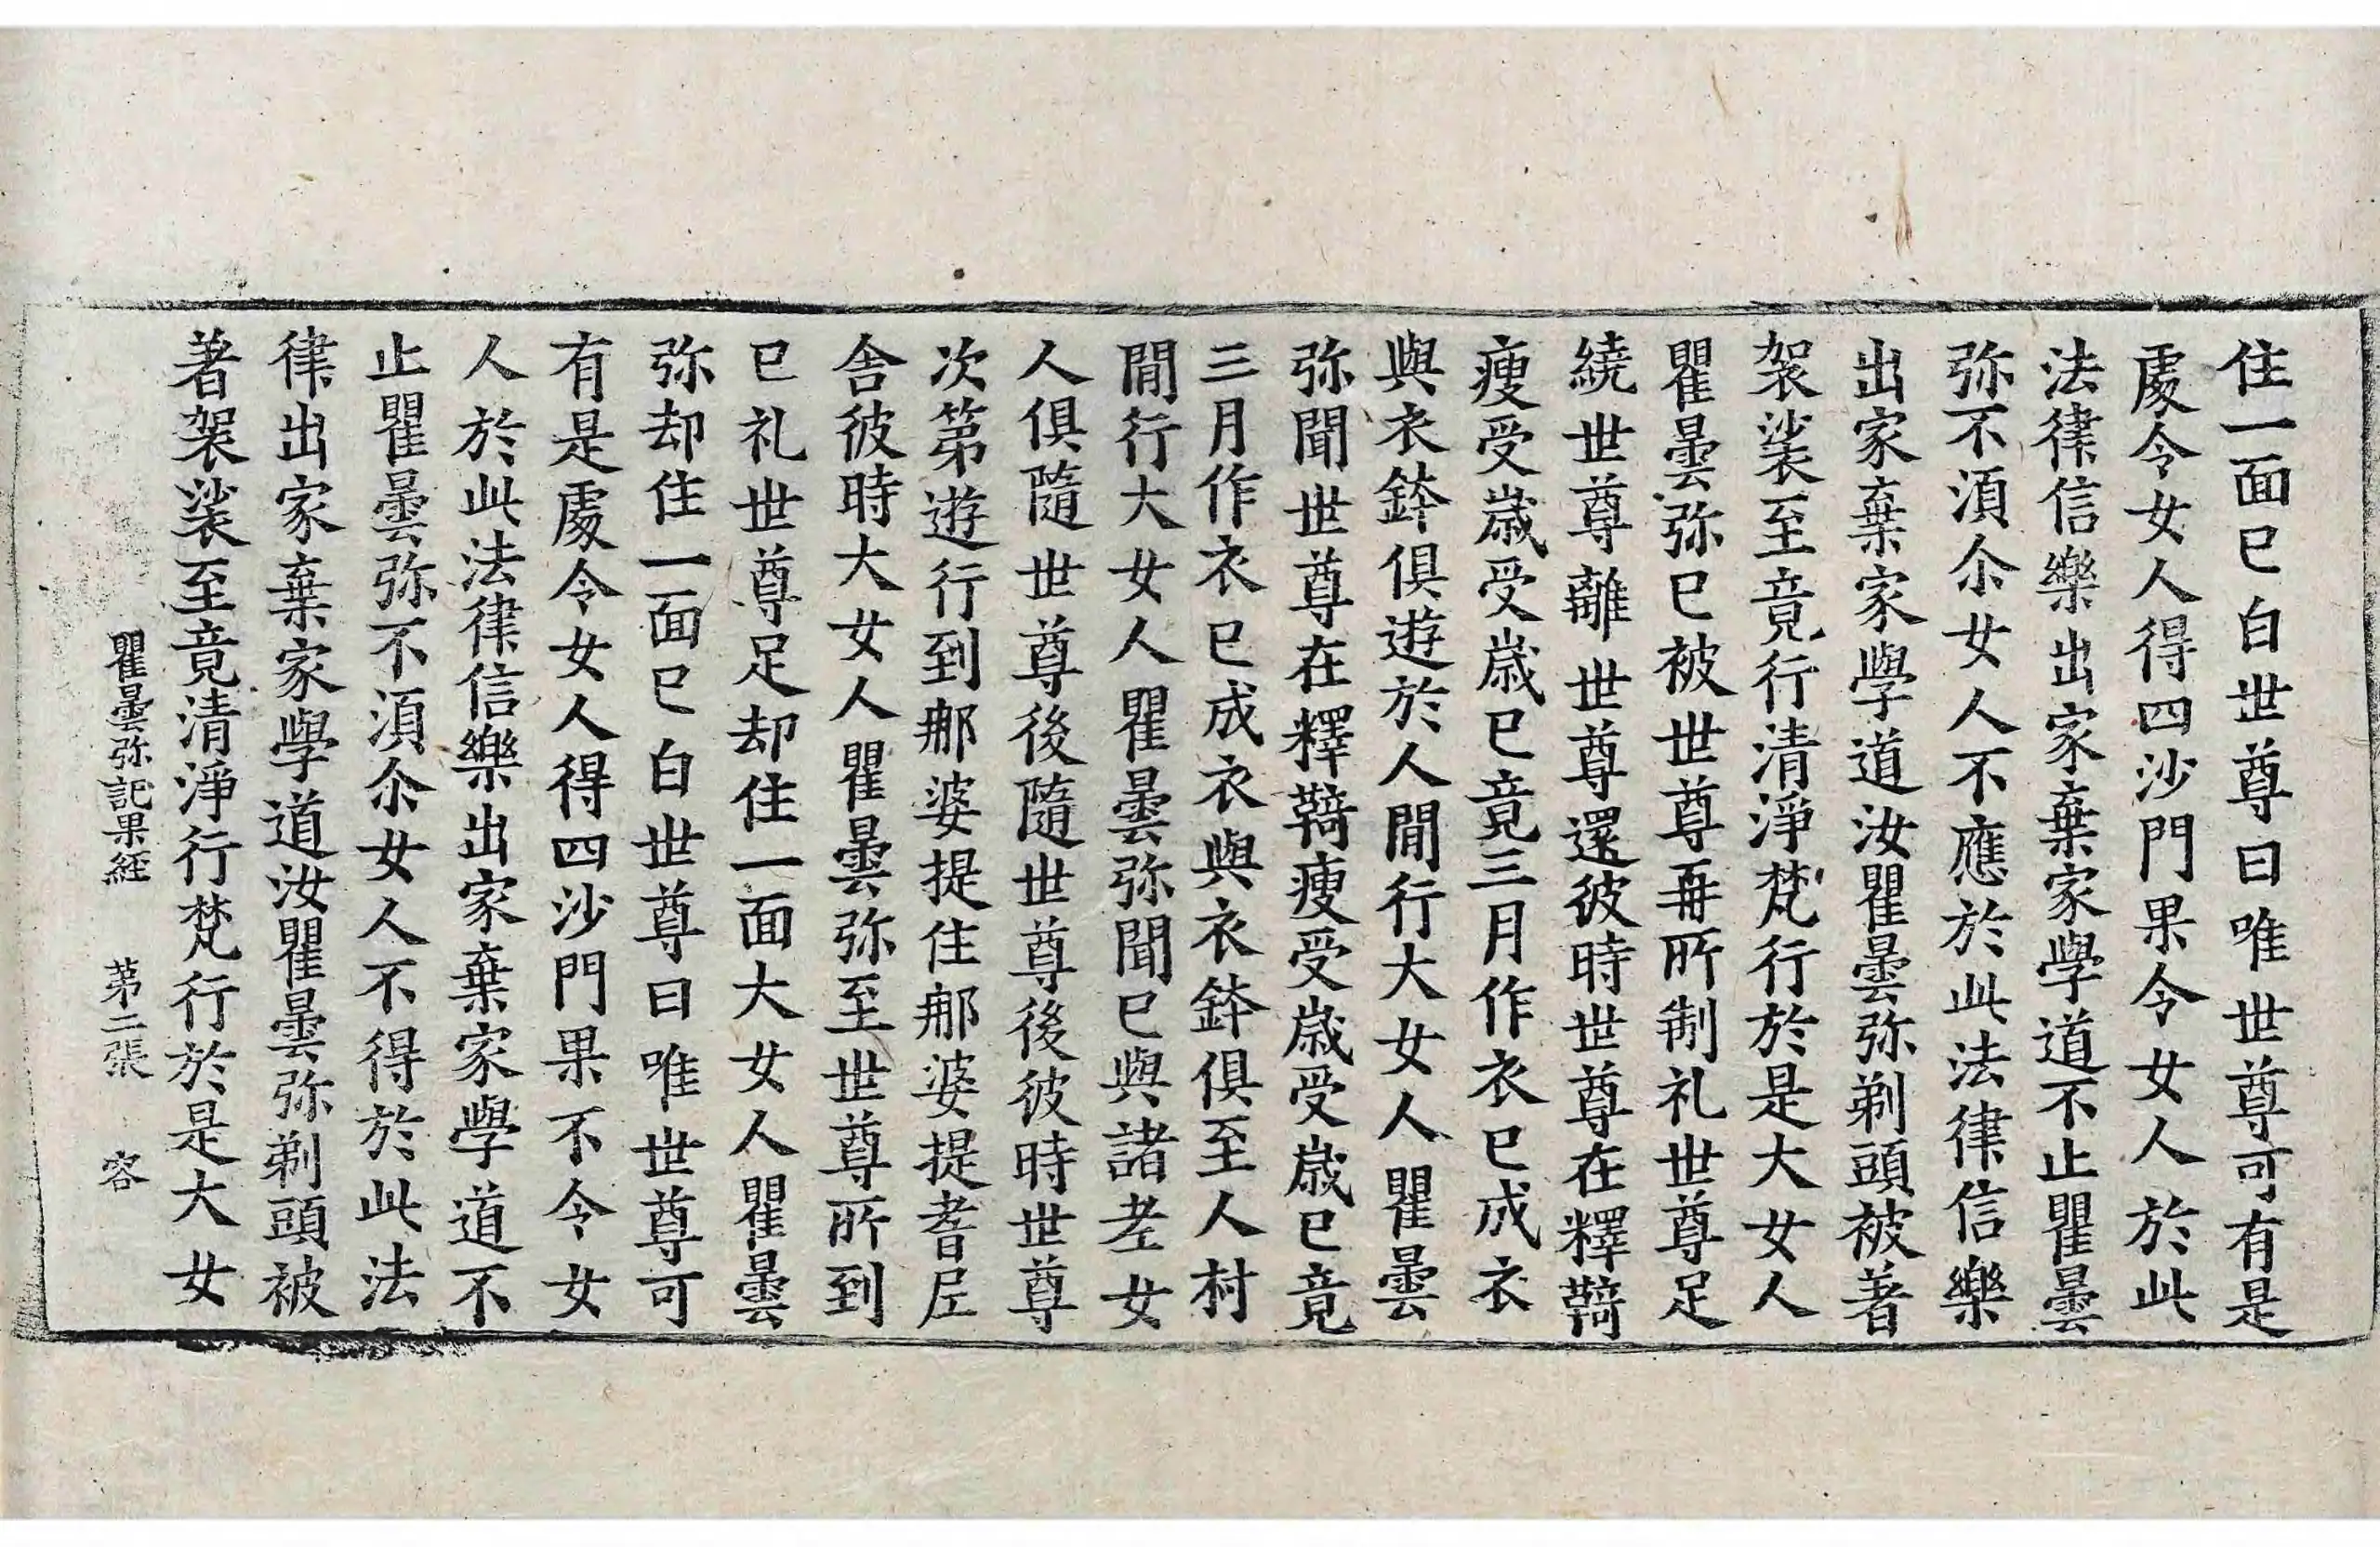 住一面已白世尊曰唯世尊可有是
處令女人得四沙門果令女人於此
法律信樂出家棄家學道不止瞿曇
弥不湏尒女人不應於此法律信樂
出家棄家學道汝瞿曇弥剃頭被著
袈裟至竟行清淨梵行於是大女人
瞿曇弥已被世尊再所制礼世尊足
繞世尊離世尊還彼時世尊在釋鞫
瘦受歲受歲已竟三月作衣已成衣
與衣鉢俱遊於人間行大女人瞿曇
弥聞世尊在釋鞫瘦受歲受歲已竟
三月作衣已成衣與衣鉢俱至人村
間行大女人瞿曇弥聞已與諸老女
人俱隨世尊後隨世尊後彼時世尊
次第遊行到那婆提住那婆提耆尼
舍彼時大女人瞿曇弥至世尊所到
已礼世尊足却住一面大女人瞿曇
弥却住一面已白世尊曰唯世尊可
有是處令女人得四沙門果不令女
人於此法律信樂出家棄家學道不
止瞿曇弥不湏尒女人不得於此法
律出家棄家學道汝瞿曇弥剃頭被
著袈裟至竟清淨行梵行於是大女
瞿曇弥記果經 第二張 容